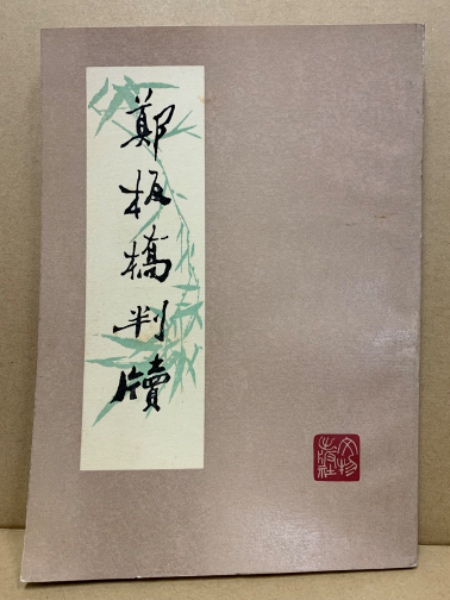 鄭板橋判牘
文物
出版社